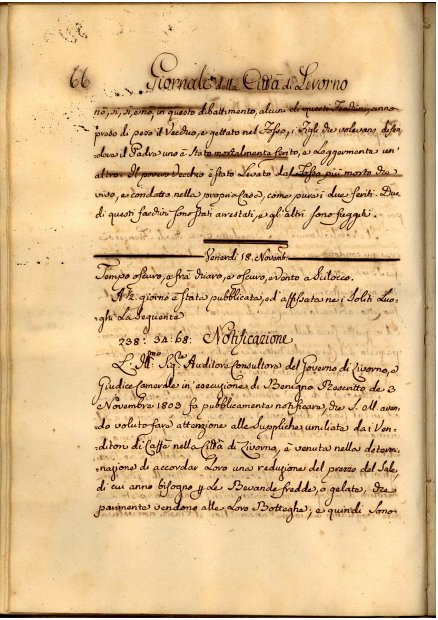 66 Giornale della Città di Livorno
no, si, si, e no, in questo dibattimento, alcuni di questi Facchini, anno
preso di peso il Vecchio, e gettato nel Fosso, i Figli che volevano difen
dere il Padre uno è Stato mortalmente ferito, e Leggermente un
altro: Il povero Vecchio è stato Levato dal Fosso più morto che
vivo, e condotto nella propria Casa, come pure i due feriti. Due
di questi facchini sono stati arrestati, e gl'altri sono fuggiti.
Venerdì 18. Novemb.
Tempo oscuro, e frà chiaro, e oscuro, e vento a Scilocco.
A ½ giorno è stata pubblicata, ed affissata ne i Soliti Luo-
ghi La Seguente
238: 34: 68: Notificazione
L'Ill.mo Sig.re Auditore Consultore del Governo di Livorno, e
Giudice Camerale in esecuzione di Benigno Rescritto de 3
Novembre 1803 fa pubblicamente notificare, che S. M. aven-
do voluto fare attenzione alle Suppliche umiliate dai Ven-
ditori di Caffè nella Città di Livorno, è venuta nella determi-
nazione di accordar Loro una reduzione del prezzo del Sale,
di cui anno bisogno p Le Bevande fredde, o gelate, che
parimente vendono alle Loro Botteghe, e quindi Sono